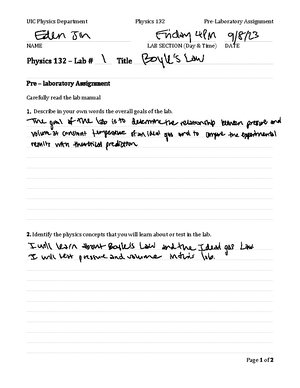 UIC Physics Department Physics 132 Pre-Laboratory Assignment
Eden Jen Friday 4PM 9/8/23
NAME LAB SECTION (Day & Time) DATE
Physics 132 – Lab # 1 Title Boyle's Law
Pre – laboratory Assignment
Carefully read the lab manual
1. Describe in your own words the overall goals of the lab.
The goal of the lab is to determine the relationship between pressure and
volume at constant temperature of an ideal gas and to compare the experimental
results with theoretical prediction.
2. Identify the physics concepts that you will learn about or test in the lab.
I will learn about Boyle's Law and the Ideal gas Law
I will test pressure and volume in this lab.
Page 1 of 2